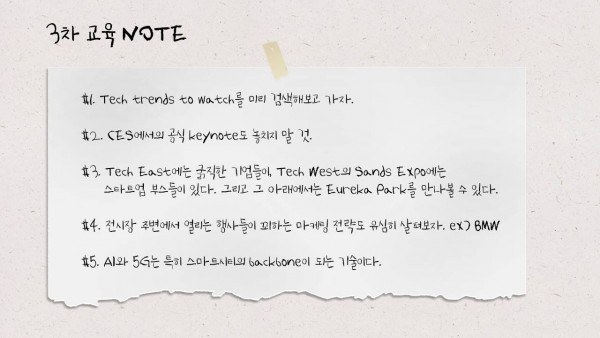 3차 교육 NOTE
#1. Tech trends to watch를 미리 검색해보고 가자.
#2. CES에서의 공식 keynote도 놓치지 말 것.
#3. Tech East에는 굵직한 기업들이, Tech West의 Sands Expo에는
스타트업 부스들이 있다. 그리고 그 아래에서는 Eureka Park를 만나볼 수 있다.
#4. 전시장 주변에서 열리는 행사들이 꾀하는 마케팅 전략도 유심히 살펴보자. ex) BMW
#5. AI와 5G는 특히 스마트시티의 backbone이 되는 기술이다.